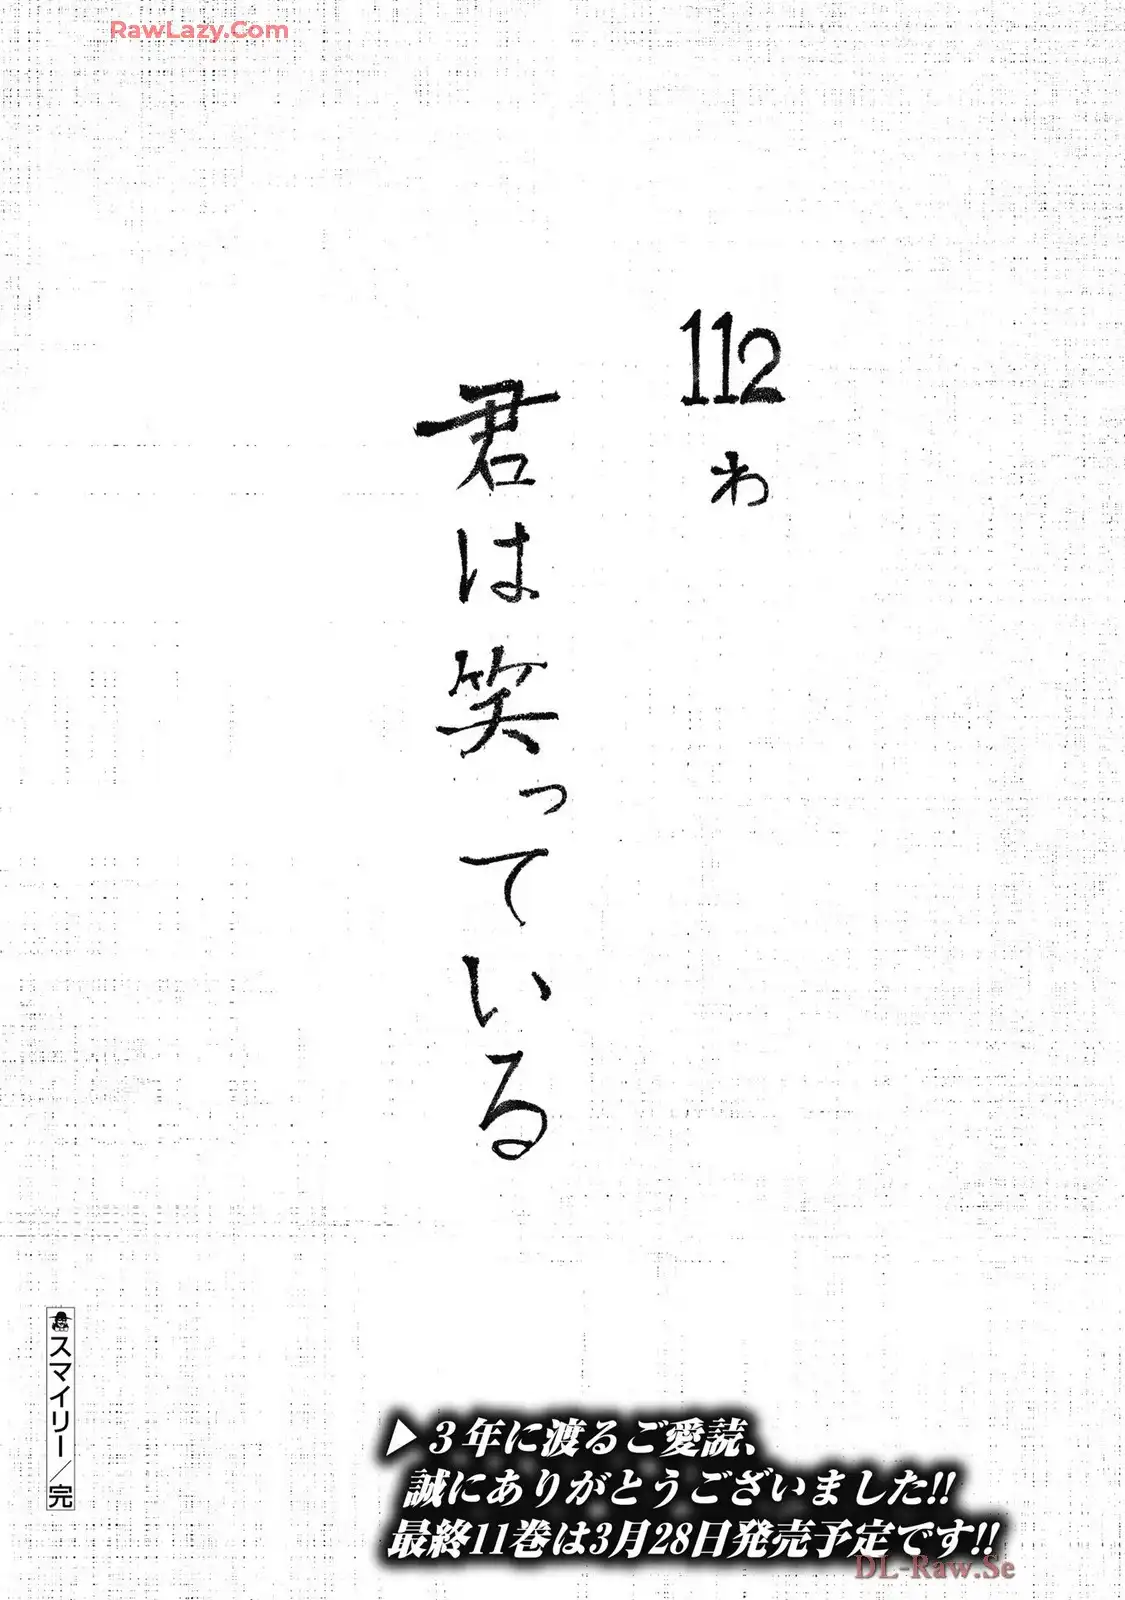 RawLazy.Com
112
わ
君は笑っている
スマイリー／完
▶3年に渡るご愛読、
誠にありがとうございました!!
最終11巻は3月28日発売予定です!!
DL-Raw.Se